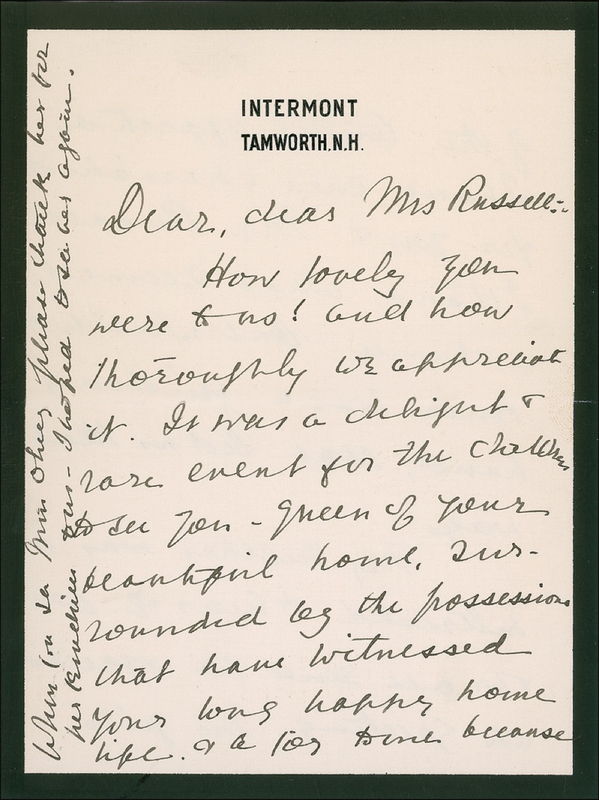 INTERMONT
TAMWORTH. N.H.
Dear, dear Mrs Russell:-
How lovely you
were to us! and how
thoroughly we appreciate
it. It was a delight &
rare event for the children
to see you - queen of your
beautiful home, sur-
rounded by the possessions
that have witnessed
your long happy home
life. & a joy to me because
When you see Miss please thank her for
her kindness to us - I hoped to see her again.